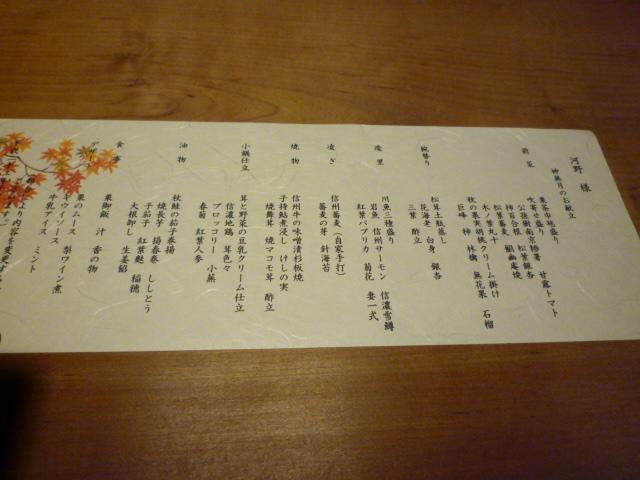 河野 様
神無月のお献立
前菜
栗茶巾地盛り 甘露トマト
吹寄せ盛り
公孫樹南京
松葉銀杏
神百合根 鯛幽庵焼
松葉蕎麦
木ノ葉丸十
秋の果実胡桃クリーム掛け
巨峰 柿 林檎 無花果 石榴
椀替り
松茸土瓶蒸し
花海老 白身 銀杏
三葉 酢立
造里
川魚三種盛り
岩魚 信州サーモン 信濃雪鱒
紅葉パプリカ 菊花 妻一式
凌ぎ
信州蕎麦(自家手打)
蕎麦の芽 針海苔
焼物
信州牛の味噌漬杉板焼
子持鮎煮浸し けしの実
焼舞茸 焼マコモ茸 酢立
小鍋仕立
茸と野菜の豆乳クリーム仕立
信濃地鶏 茸色々
ブロッコリー 小蕪
春菊 紅葉人参
油物
秋鮭の茄子巻揚
焼長芋 揚春巻 ししとう
子茄子 紅葉麩 稲穂
大根卸し 生姜餡
食事
栗御飯 汁 香の物
デザート
栗のムース 梨ワイン煮
キウイソース
牛乳アイス ミント
より内容を変更する